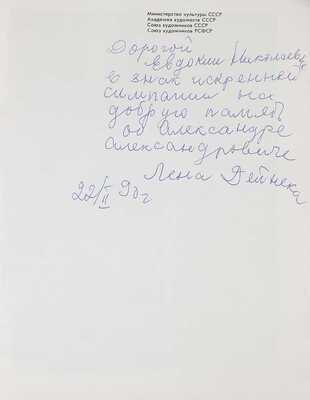 Министерство культуры СССР
Академия художеств СССР
Союз художников СССР
Союз художников РСФСР
Дорогой
Евдокии Николаевне
в знак искренней
симпатии на
добрую память
об Александре
Александровиче
Лена Дейнека
22/II 90 г